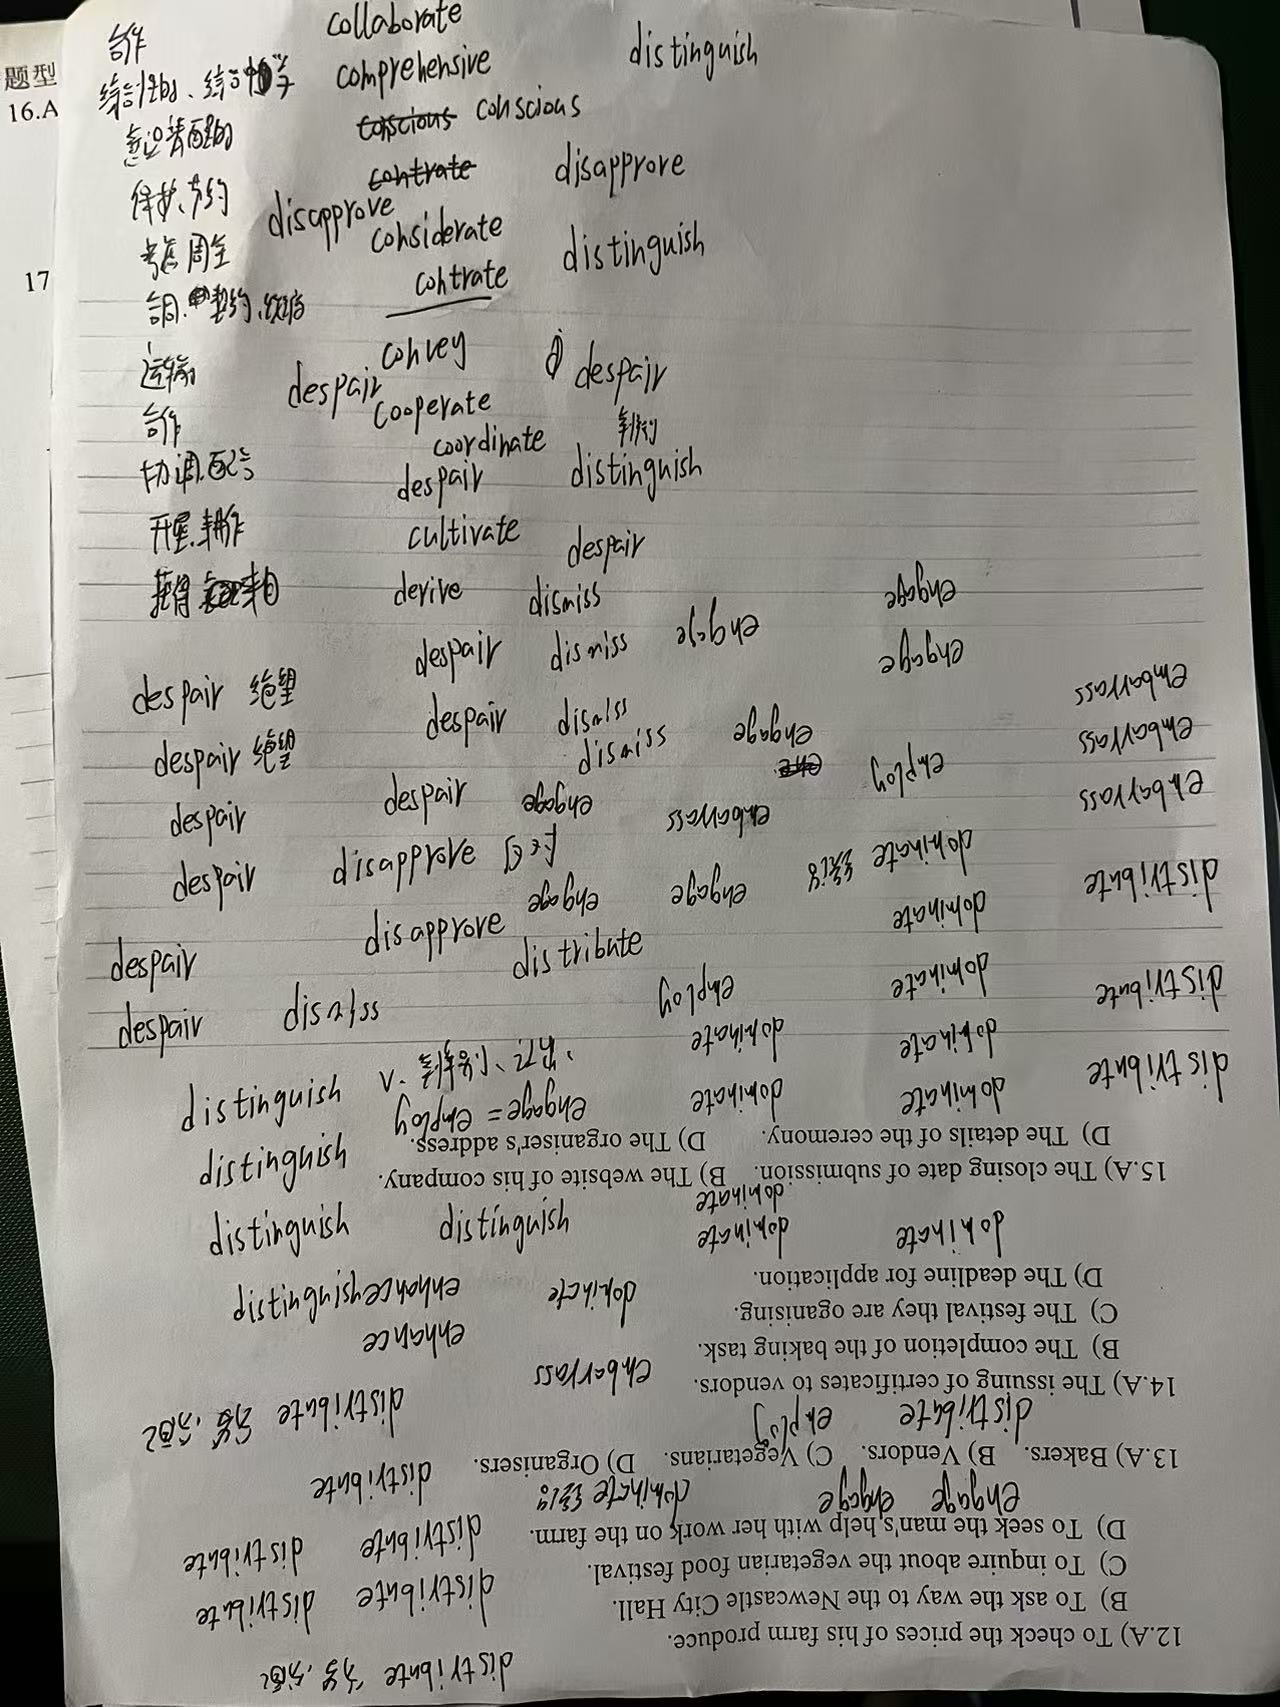 题型
16.A
17
合作 collaborate
综合性的、综合中学 comprehensive distinguish
意识清醒的 conscious conscious
保护、节约 contrate disapprove
考虑周全 disapprove considerate distinguish
合同、契约、收缩 contrate
运输 convey despair
合作 despair cooperate
协调、配合 coordinate 辨别
despair distinguish
开垦、耕作 cultivate despair
获得 来自 derive dismiss engage
despair 绝望 despair dismiss engage engage
despair 绝望 despair dismiss engage embarrass
dismiss embarrass
despair despair engage embarrass employ embarrass
despair disapprove 反对 engage engage dominate 统治 distribute
despair disapprove distribute dominate
despair dismiss employ dominate distribute
distinguish v. 辨别、 dominate dominate distribute
engage = employ dominate dominate
distinguish
distinguish distinguish
distribute 分发、分配
12.A) To check the prices of his farm produce.
B) To ask the way to the Newcastle City Hall.
distribute distribute
C) To inquire about the vegetarian food festival.
D) To seek the man's help with her work on the farm.
distribute distribute
engage engage dominate 统治
13.A) Bakers. B) Vendors. C) Vegetarians. D) Organisers.
distribute
distribute employ
14.A) The issuing of certificates to vendors.
distribute 分发、分配
embarrass
B) The completion of the baking task.
enhance
C) The festival they are oganising.
D) The deadline for application.
dominate enhance distinguish
dominate dominate
dominate
15.A) The closing date of submission. B) The website of his company.
D) The details of the ceremony. D) The organiser's address.